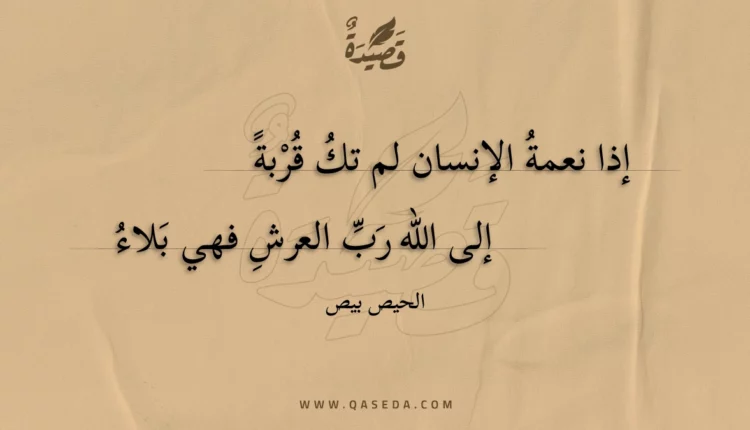 قَصِيْدَةٌ
إذا نعمةُ الإنسان لم تكُ قُرْبةً
إلى الله رَبِّ العرشِ فهي بَلاءُ
الحيص بيص
WWW.QASEDA.COM